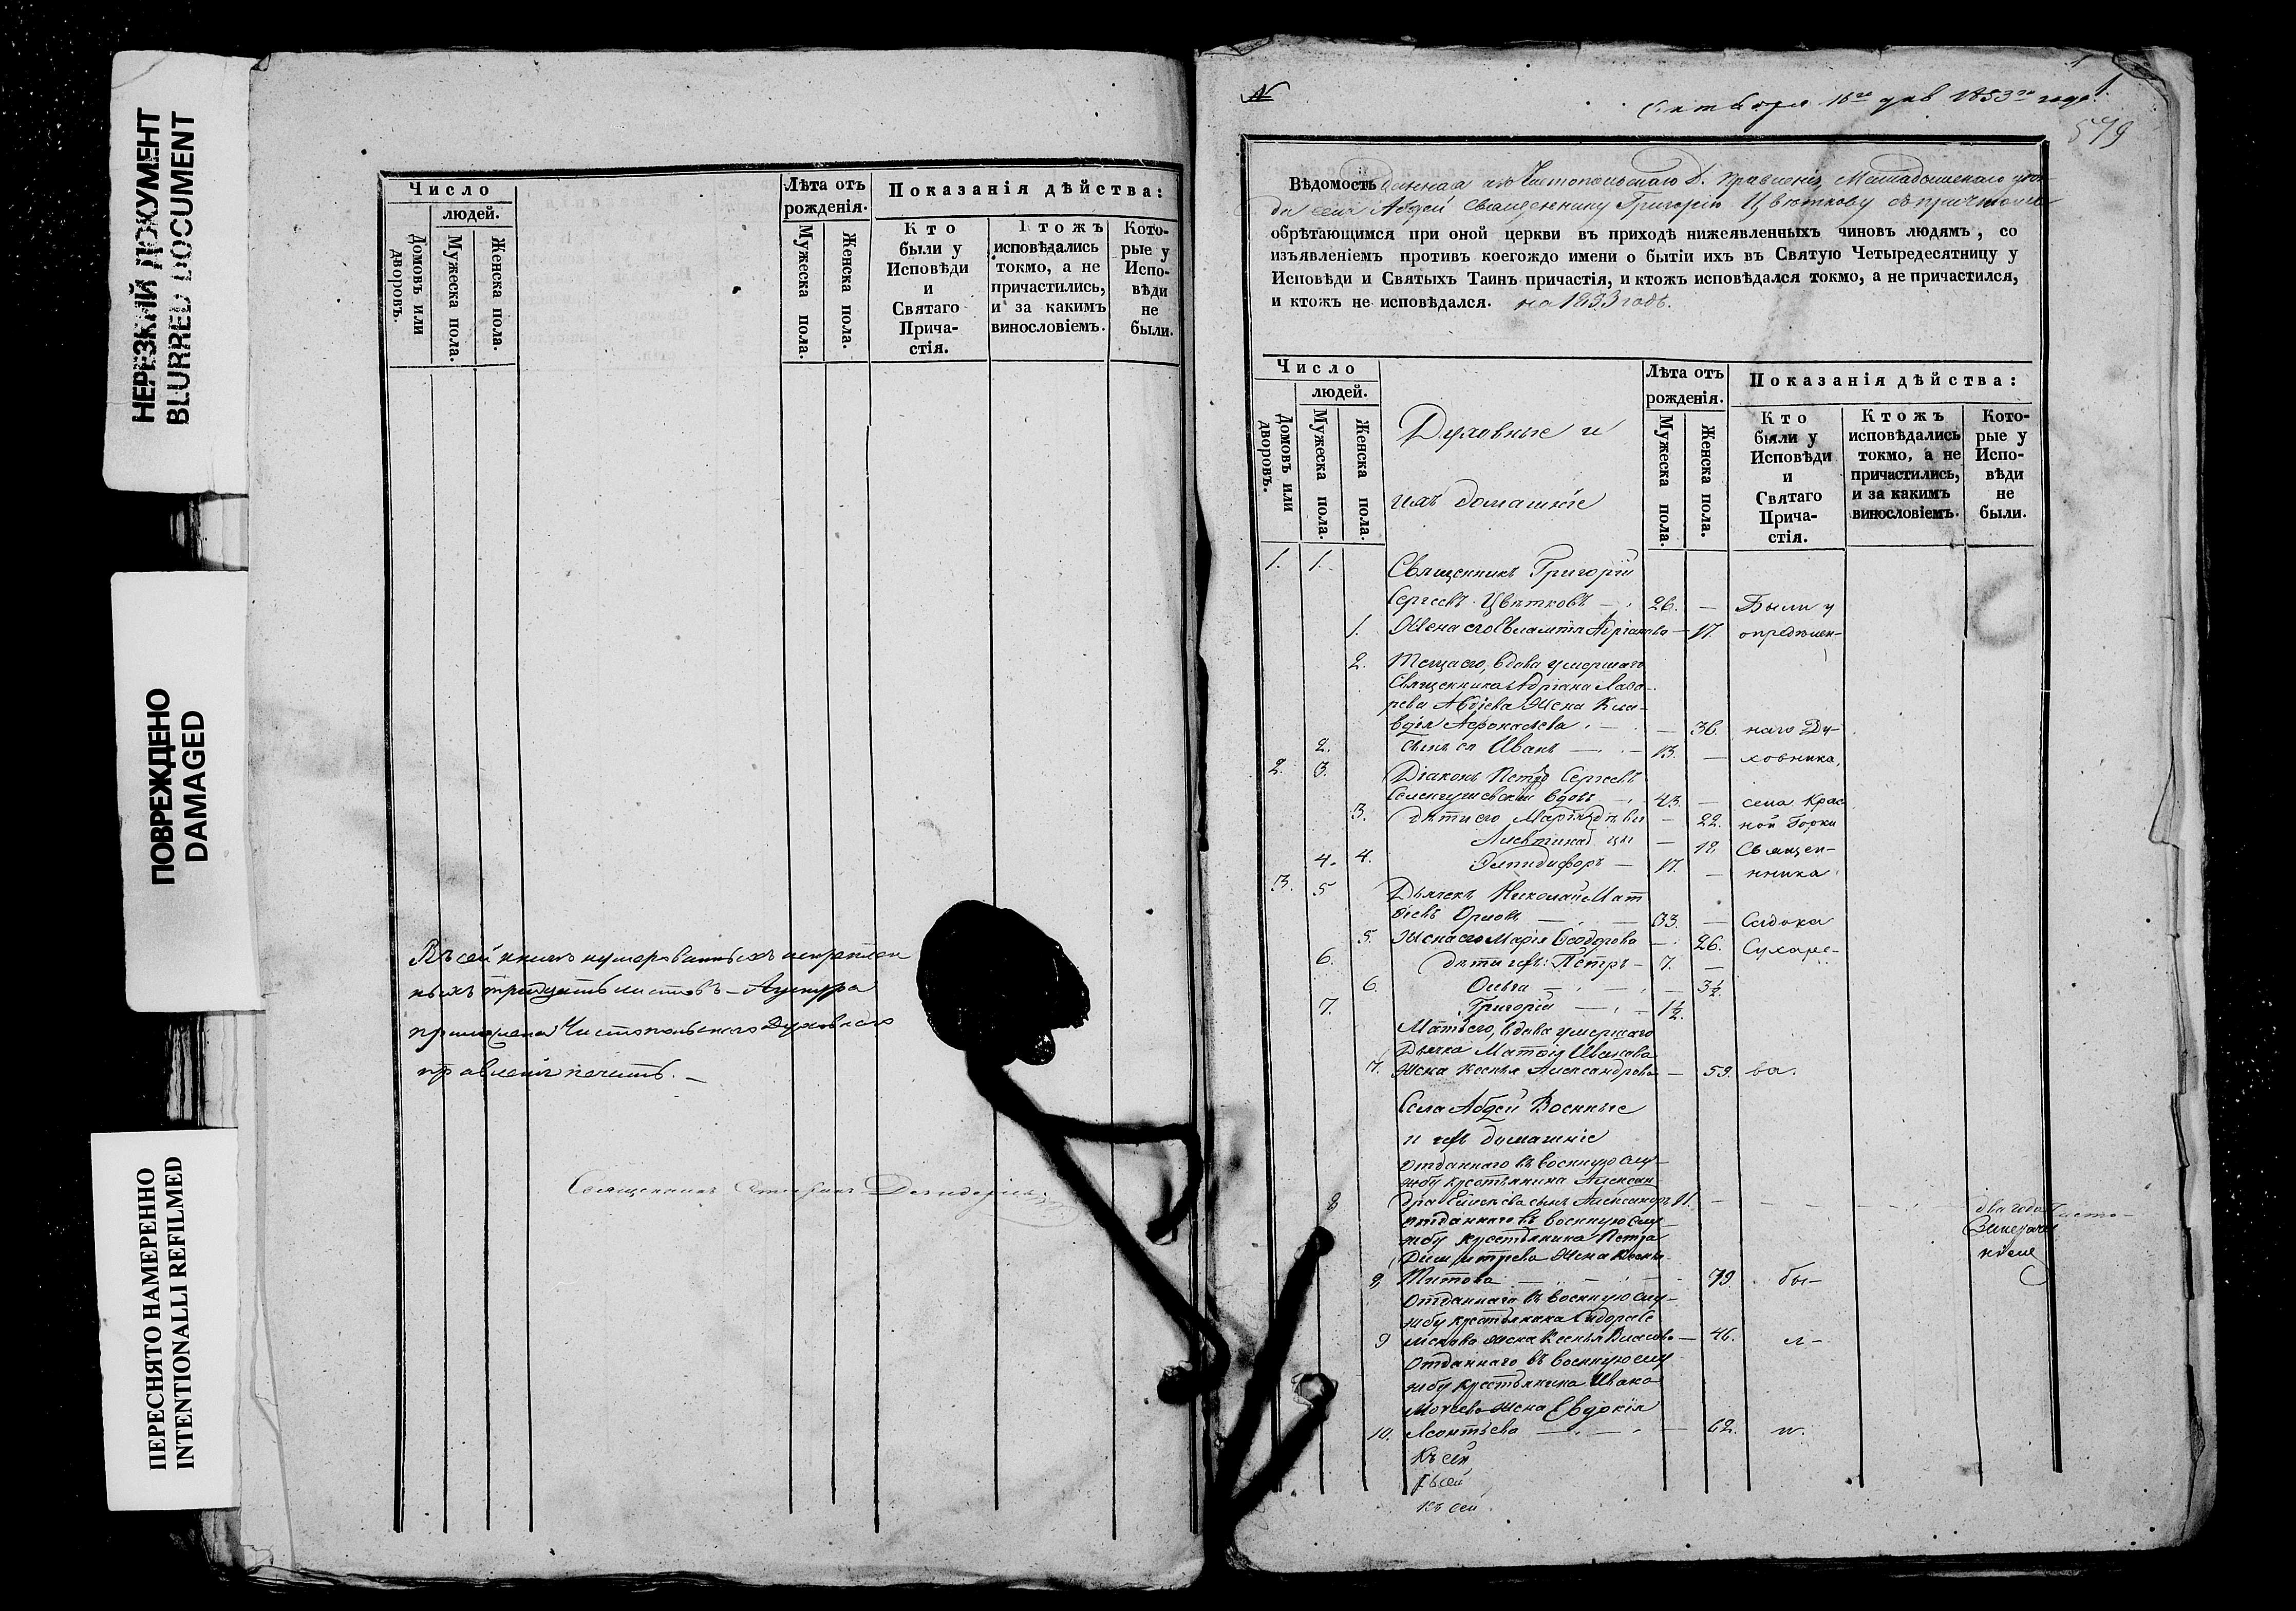 НЕРЕЗКИЙ ДОКУМЕНТ
BLURRED DOCUMENT
ПОВРЕЖДЕНО
DAMAGED
ПЕРЕСНЯТО НАМЕРЕННО
INTENTIONALLI REFILMED
Число
людей.
Домовъ или дворовъ.
Мужеска пола.
Женска пола.
Лѣта отъ рожденія.
Мужеска пола.
Женска пола.
Показанія дѣйства:
Кто были у Исповѣди и Святаго Прича-стія.
Ктожъ исповѣдались токмо, а не причастились, и за какимъ винословіемъ.
Кото-рые у Испо-вѣди не были.
Въ сей книгѣ нумерованныхъ и скрѣплен
ныхъ тридцать листовъ – А у шнура
приложена Чистопольскаго Духовнаго
правленія печать. –
Священникъ
№
16го 1833го года.
1
579
Вѣдомость данная изъ Чистопольскаго Д. Правленія,
села Абдей священнику Григорію Цвѣткову съ причтомъ
обрѣтающимся при оной церкви въ приходѣ нижеявленныхъ чиновъ людямъ, со
изъявленіемъ противъ коегождо имени о бытіи ихъ въ Святую Четыредесятницу у
Исповѣди и Святыхъ Таинъ причастія, и ктожъ исповѣдался токмо, а не причастился,
и ктожъ не исповѣдался. на 1833 годъ.
Число
людей.
Домовъ или дворовъ.
Мужеска пола.
Женска пола.
Духовные и
ихъ домашніе
Лѣта отъ рожденія.
Мужеска пола.
Женска пола.
Показанія дѣйства:
Кто были у Исповѣди и Святаго Прича-стія.
Ктожъ исповѣдались токмо, а не причастились, и за какимъ винословіемъ.
Кото-рые у Испо-вѣди не были.
1. 1. Священникъ Григорій
Сергеевъ Цвѣтковъ — 26. — Были у
1. Жена его Адріанова — 17. опредѣлен-
2. Теща его, вдова умершаго
Священника Адріана Лаза-
рева Авдіева Жена Кла-
вдія Афонасьева — 36. наго Ду-
2. сынъ ея Иванъ — 13. — ховника,
2. 3. Діаконъ Петръ Сергеевъ
вдовъ — 43. — села Крас
3. дѣти его Марія дѣви — 22. ной Горки
цы — 12. Священ-
4. 4. Элпидифоръ — 17. — нника
3. 5 Дьячекъ Николай Мат
ѳіевъ Орловъ — 33. —
5. Жена его Марія Ѳеодорова — 26. Сухаре-
6. дѣти ихъ: Петръ — 7. —
6. Ольга — 3½.
7. Григорій — 1½.
Мать его, вдова умершаго
Дьячка Матѳія Иванова
7. Жена Ксенья Александрова — 59. ва.
Села Абдей Военные
и ихъ домашніе
Отданнаго въ военную слу-
жбу крестьянина Алексан
8 дра сынъ Александръ 11. — два года
отданнаго въ военную слу-
жбу крестьянина Петра
Димитрева Жена Ксенья
8. Титова — 79. бы-
Отданнаго въ военную слу-
жбу крестьянина Сидора
9 жена Ксенья Власова — 46. л-
Отданнаго въ военную слу
жбу крестьянина Ивана
жена Евдокія
10. Леонтьева — 62. и.
Къ сей
къ сей
къ сей